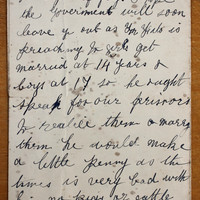 the Government will soon
leave y out as
preaching to get
married at 14 years &
boys at 17 so he ought
speak for our prisoners
to realise them & marry
them he would make
a little penny as the
times is very bad with
him no price for cattle